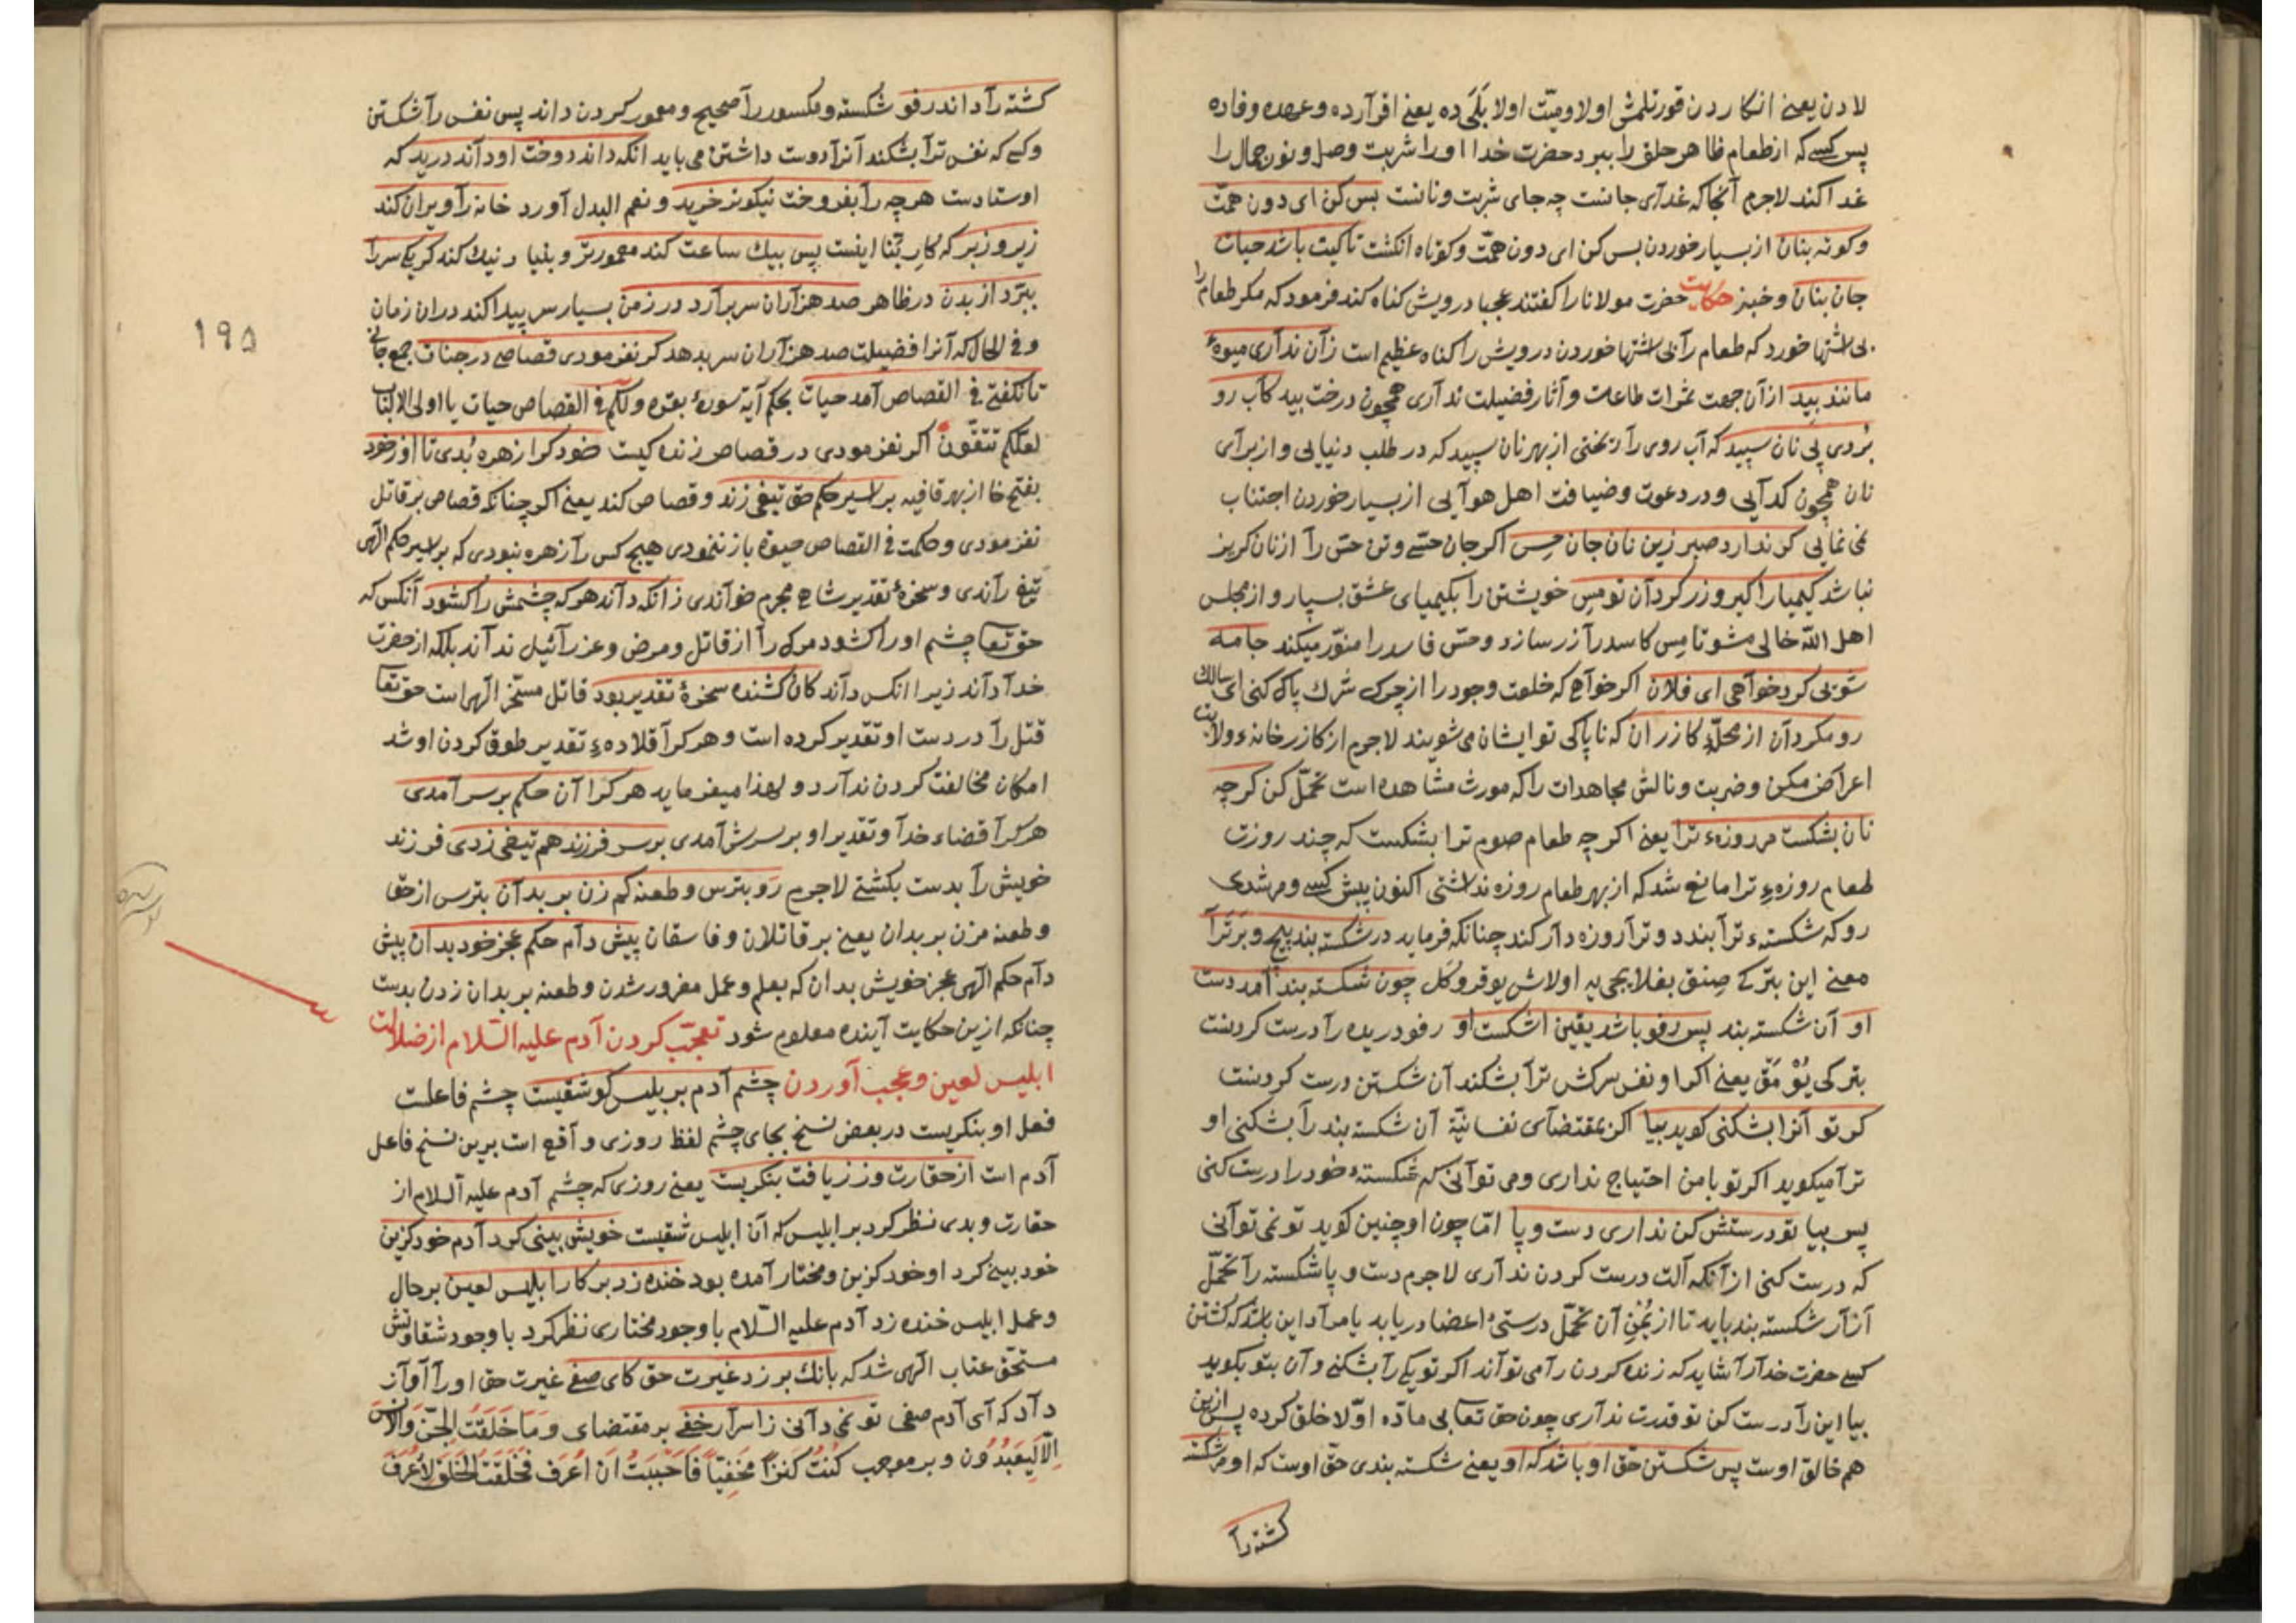 لا دن یعنے انکار دن قورتلمش اولا و میّت اولا بَلَی ده یعنے اقرآرده و عهده وفاده
پس کسے که از طعام ظاهر حلق را ببرد حضرت خدا او را شربت وصل و نون جمال را
غدا کند لاجرم آنجا که غدآی جانست چه جای شربت و نانست بس کن ای دون همّت
و کوته بنان از بسیار خوردن بس کن ای دون همّت و کوتاه انکشت تا کیت باشد حیات
جان بنان و خبز حکایت حضرت مولانا را کفتند عجبا درویش کناه کند فرمود که مکر طعام را
بی اشتها خورد که طعام رآ بی اشتها خوردن درویش را کناه عظیم است زآن ندآری میوهٔ
مانند بید از آن جهت ثمرات طاعت و آثار فضیلت ندآری همچون درخت بید کآب رو
بردی پی نان سپید که آب روی رآ ریختی از بهر نان سپید که در طلب دنیایی و از برآی
نان همچون کدآیی و در دعوت و ضیافت اهل هوآیی از بسیار خوردن اجتناب
نمی نمایی کر ندارد صبر زین نان جان حس اکر جان حسّے و تن حسّ رآ از نان کریز
نباشد کیمیا را کیر و زر کردآن تو مس خویشتن را بکیمیای عشق بسپار و از مجلس
اهل الله خالی مشو تا مس کاسد رآ زر سازد و حسّ فاسد را منوّر میکند جامه
شویی کرد خوآهی ای فلان اکر خوآهے که خلعت وجود را از چرک شرک پاک کنی ای سالک
رو مکردآن از محلّهٔ کازران که ناپاکی تو ایشان می شویند لاجرم از کازر خانهٔ ولایت
اعراض مکن و ضربت و نالش مجاهدات را که مورث مشاهده است تحمّل کن کرچه
نان بشکست مر روزهٔ ترا یعنے اکرچه طعام صوم ترا بشکست که چند روزت
طعام روزهٔ ترا مانع شد که از بهر طعام روزه نداشتی اکنون پیش کسے و مرشدی
رو که شکستهٔ ترآ بندد و ترآ روزه دآر کند چنانکه فرماید در شکسته بند پیچ و برترآ
معنے این بتر کے صنق بغلایجی یه اولاش یوقرو کل چون شکسته بند آمد دست
او آن شکسته بند پس رفو باشد یقین اشکست او رفو دریده رآ درست کردنست
بتر کی یَوْ مَق یعنے اکر او نفس سرکش ترآ بشکند آن شکستن درست کردنست
کر تو آنرا بشکنی کوید بیا اکر بمقتضآی نفسانیّة آن شکسته بند رآ بشکنی او
ترآ میکوید اکر تو با من احتیاج نداری و می توآنی که شکستهٔ خود را درست کنی
پس بیا تو درستش کن نداری دست و پا امّا چون او چنین کوید تو نمی توآنی
که درست کنی از آنکه آلت درست کردن ندآری لاجرم دست و پا شکسته رآ تحمّل
آزآر شکسته بند باید تا از یُمْنِ آن تحمّل درستیٔ اعضا دریابد یا مرآد این باشد که کشتن
کسے حضرت خدآ رآ شاید که زنده کردن رآ می توآند اکر تو یکے رآ بشکنے و آن بتو بکوید
بیا این رآ درست کن تو قدرت ندآری چون حق تعا بی مادّه اوّلا خلق کرده پس ازین
هم خالق اوست پس شکستن حقّ او باشد که او یعنے شکسته بندی حقّ اوست که او مر شکسته
کشته رآ
۱۹۵
کشته رآ داند رفو شکسته و مکسور رآ صحیح و معمور کردن داند پس نفس رآ شکستن
و کسے که نفس ترآ بشکند آنرآ دوست داشتن می باید انکه داند دوخت او داند درید که
اوستادست هرچه رآ بفروخت نیکوتر خرید و نعم البدل آورد خانه رآ ویران کند
زیر و زبر که کار بنّا اینست پس بیک ساعت کند معمورتر و بنیاد نیک کند کر یکے سر را
ببرّد از بدن در ظاهر صد هزآران سر برآرد در زمن بسیار سر پیدا کند در آن زمان
و فی الحال که آنرا فضیلت صد هزآران سر بدهد کر نفرمودی قصاصے در جنات جمع جانی
تا نکفتی فے القصاص آمد حیات بحکم آیهٔ سورهٔ بقره ولکم فے القصاص حیات یا اولی الالباب
لعلّکم تتّقون اکر نفرمودی در قصاص زنده کیست خود کرا زهره بُدی تا او ز خود
بفتح خا از بهر قافیه بر اسیر حکم حق تیغی زند و قصاص کند یعنے اکر چنانکه قصاص بر قاتل
نفرمودی و حکمت فے القصاص حیوة باز ننمودی هیچ کس رآ زهره نبودی که بر اسیر حکم الهی
تیغ رآندی و سخرهٔ تقدیر شاهے مجرم خوآندی زآنکه دآند هر که چشمش رآ کشود آنکس که
حق تعا چشم او رآ کشود مرک رآ از قاتل و مرض و عزرآئیل ندآند بلکه از حضرت
خدآ دآند زیرا انکس دآند کان کشنده سخرهٔ تقدیر بود قاتل مسخّر الهی است حق تعا
قتل رآ در دست او تقدیر کرده است و هر کرآ قلادهٔ تقدیر طوق کردن او شد
امکان مخالفت کردن ندآرد و لهذا میفرماید هر کرا آن حکم بر سر آمدی
هر کرآ قضاء خدآ و تقدیر او بر سرش آمدی بر سر فرزند هم تیغی زدی فرزند
خویش رآ بدست بکشتے لاجرم رَو بترس و طعنه کم زن بر بدآن بترس از حق
و طعنه مزن بر بدان یعنے بر قاتلان و فاسقان پیش دآم حکم عجز خود بدان پیش
دآم حکم الهی عجز خویش بدان که بعلم و عمل مغرور شدن و طعنه بر بدان زدن بدست
چنانکه ازین حکایت آینده معلوم شود تعجّب کردن آدم علیه السّلام از ضلالت
ابلیس لعین و عجب آوردن چشم آدم بر بلیس کو شقیست چشم فاعلست
فعل او بنکریست در بعض نسخ بجای چشم لفظ روزی وآقع است برین نسخ فاعل
آدم است از حقارت وز زیافت بنکریست یعنے روزی که چشم آدم علیه السلام از
حقارت و بدی نظر کرد بر ابلیس که آن ابلیس شقیست خویش بینی کرد آدم خود کزین
خود بینے کرد او خود کزین و مختار آمده بود خنده زد بر کار ابلیس لعین بر حال
و عمل ابلیس خنده زد آدم علیه السّلام با وجود مختاری نظر کرد با وجود شقاوتش
مستحق عتاب الهی شد که بانک بر زد غیرت حق کای صفے غیرت حق او رآ آوآز
دآد که آی آدم صفی تو نمی دآنی ز اسرآر خفے بر مقتضای وَمَا خَلَقْتُ الجِنَّ وَالْاِنْسَ
اِلَّا لِیَعْبُدُون و بر موجب کُنْتُ کَنْزاً مَخْفِیّاً فَاَحْبَبْتُ اَنْ اُعْرَفَ فَخَلَقْتُ الخَلْقَ لِاُعْرَفَ